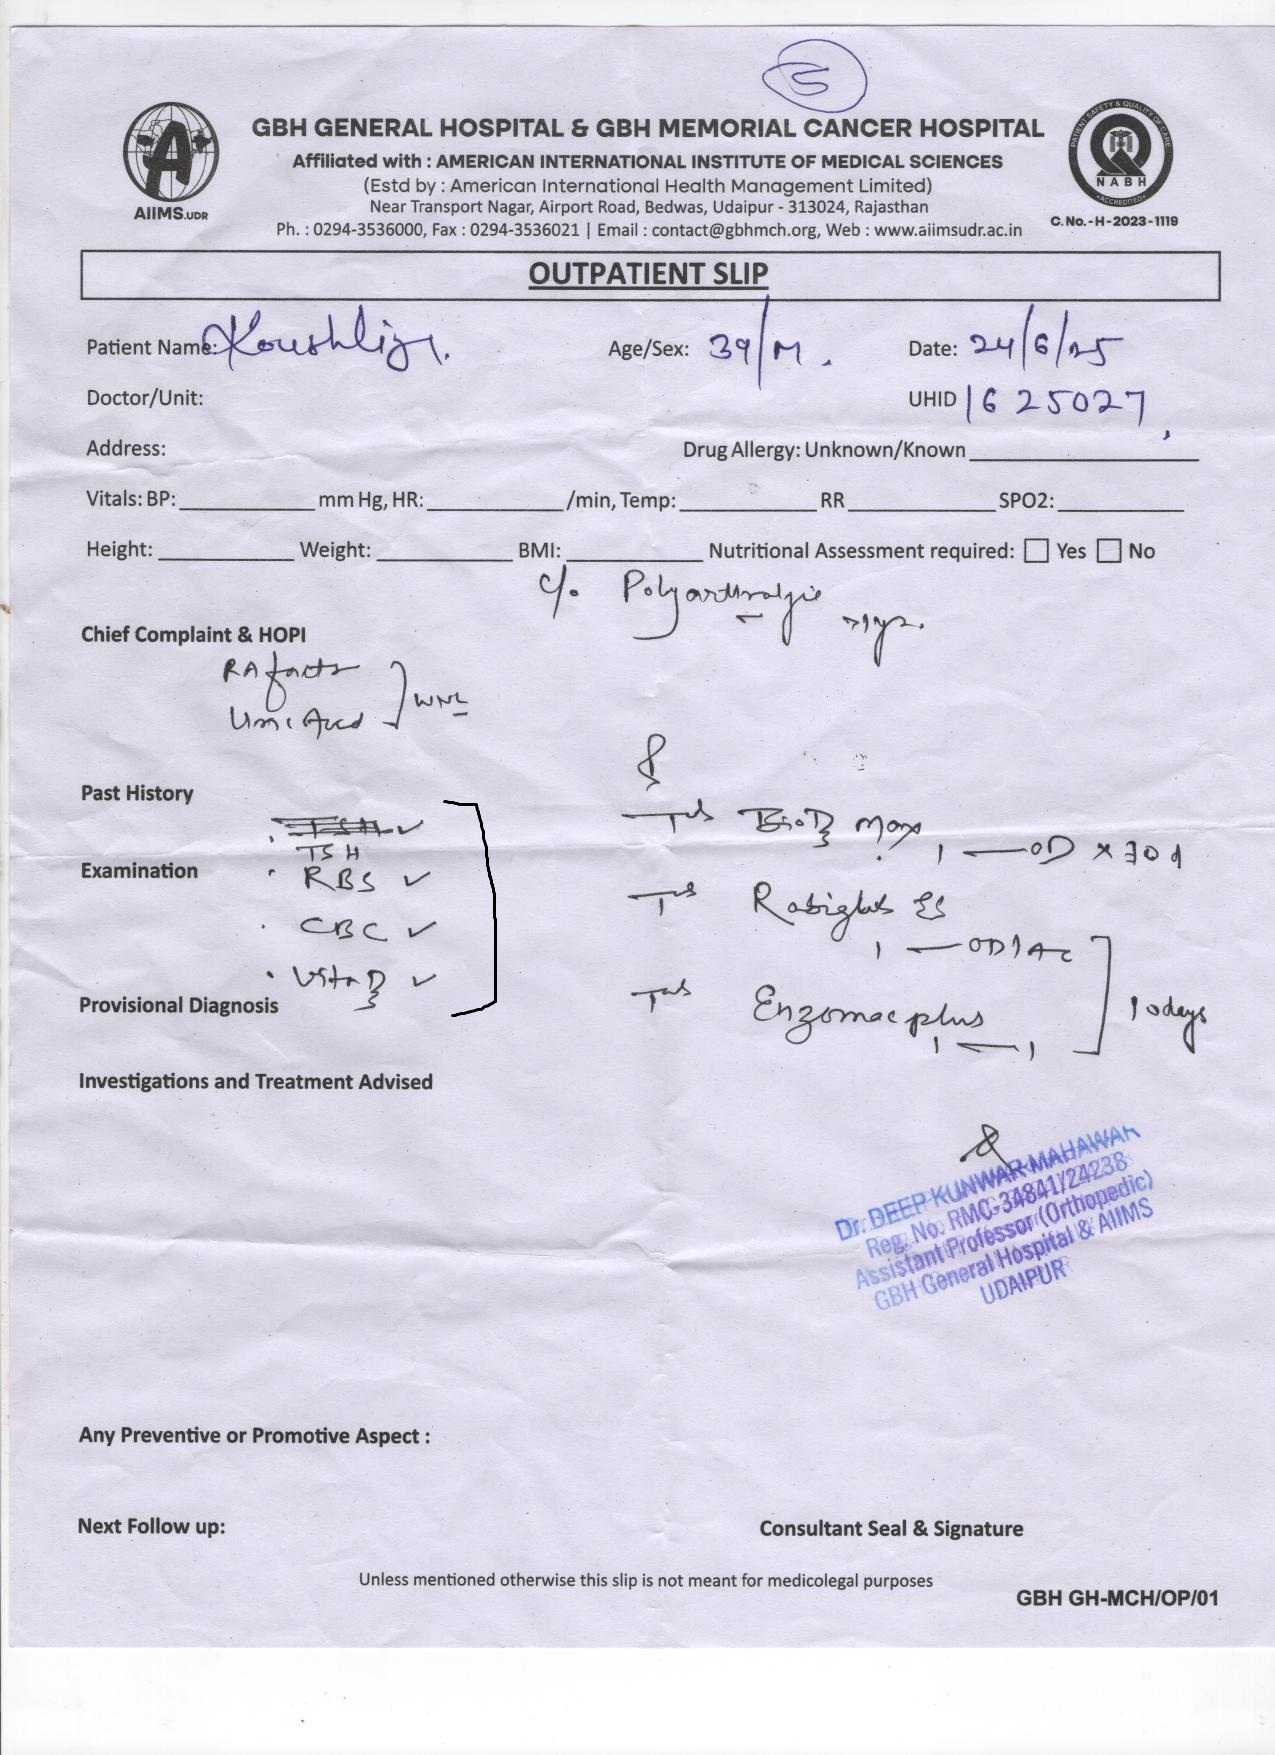 5
GBH GENERAL HOSPITAL & GBH MEMORIAL CANCER HOSPITAL
Affiliated with : AMERICAN INTERNATIONAL INSTITUTE OF MEDICAL SCIENCES
(Estd by : American International Health Management Limited)
Near Transport Nagar, Airport Road, Bedwas, Udaipur - 313024, Rajasthan
Ph. : 0294-3536000, Fax : 0294-3536021 | Email : contact@gbhmch.org, Web : www.aiimsudr.ac.in
A
AIIMS.UDR
PATIENT SAFETY & QUALITY OF CARE
NABH
ACCREDITED
C. No. - H - 2023 - 1119
OUTPATIENT SLIP
Patient Name: Age/Sex: 39/M. Date: 24/6/25
Doctor/Unit: UHID 1625027
Address: Drug Allergy: Unknown/Known
Vitals: BP: mm Hg, HR: /min, Temp: RR SPO2:
Height: Weight: BMI: Nutritional Assessment required: Yes No
c/o Polyarthralgia
>1yr.
Chief Complaint & HOPI
RA factor
Uric Acid
WNL
Past History
Tab BioD3 Max
1 — OD x 30d
TSH
Examination
RBS ✓
Tab Rabiglet ES
CBC ✓
1 — OD1AC
Vita D3 ✓
Provisional Diagnosis
Tab Enzomac plus
1 — 1
10days
Investigations and Treatment Advised
Dr. DEEP KUNWAR MAHAWAR
Reg. No. RMC-34841/24238
Assistant Professor (Orthopedic)
GBH General Hospital & AIIMS
UDAIPUR
Any Preventive or Promotive Aspect :
Next Follow up: Consultant Seal & Signature
Unless mentioned otherwise this slip is not meant for medicolegal purposes
GBH GH-MCH/OP/01